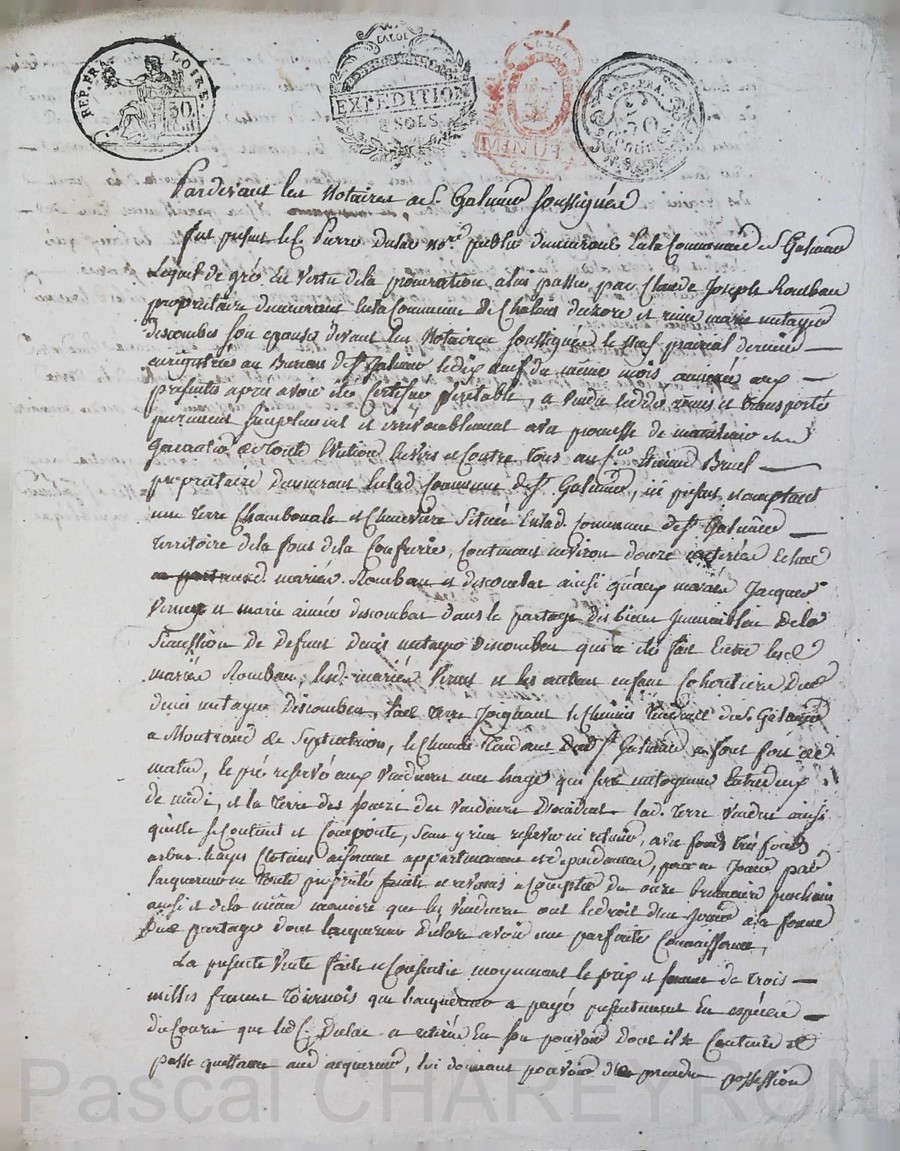 REP. FRA. LOIRE
50
LA LOI
EXPEDITION
8 SOLS
LA LOI
REP. FRA.
50
Centimes
Pardevant les Notaires de St Galmier soussignés
fut présent le C. Pierre Dulac nore public demeurant en la Commune de St Galmier
Lequel de gré en vertu de la procuration à lui passée par Claude Joseph Rombau
propriétaire demeurant en la Commune de Chalain duzore et marie mitayer
discombes son epouse devant les Notaires soussignés le neuf prairial dernier
enregistrée au Bureau de St Galmier le dix neuf du même mois annexée aux
présentes après avoir été certifiée véritable, a vendu cédé remis et transporté
purement simplement et irrévocablement avec promesse de maintenir et
Garantir de toute Eviction envers et contre tous au Bruel
propriétaire demeurant en lad. Commune de St Galmier, ici présent et acceptant
une terre Chambonale et Cheneviere Située en lad. Commune de St Galmier
territoire de la fons de la Confrerie, contenant environ douze échue
mariés Rombau et discombes ainsi qu'aux mariés Jacques
Verney et marie aimée discombes dans le partage des biens immeubles de la
Succession de defunt denis mitayer Discombes qui a été fait entre lesd.
mariés Rombau, lesd. mariés Verney et les autres enfans Cohéritiers dud.
denis mitayer Discombes, lad. terre joignant le Chemin tendant de St Galmier
a Montrond de Septentrion, le Chemin tendant dud. St Galmier a font fort de
matin, le pré réservé aux vendeurs une haye qui sera mitoyenne entre deux
de midi, et la terre des du vendeurs d'occident lad. terre vendue ainsi
qu'elle se Contient et Comporte, sans y rien reserver ni retenir, avec fonds très fonds
arbres hayes Clotures aisances appartenances et dépendances, pour en Jouir par
l'acquereur en toute propriété fruits et revenus a Compter du onze brumaire prochain
ainsi et de la même manière que les vendeurs ont le droit d'en jouir a la forme
Dud. partage dont l'acquereur déclare avoir une parfaite Connaissance,
La présente Vente faite et Consentie moyennant le prix et somme de trois
milles francs tournois que l'acquereur a payé présentement en espèces
du Cours que led. C. Dulac a retirée en son pouvoir dont il se Contente et
passe quittance aud. acquereur, lui donnant pouvoir d'en prendre possession
Pascal CHAREYRON